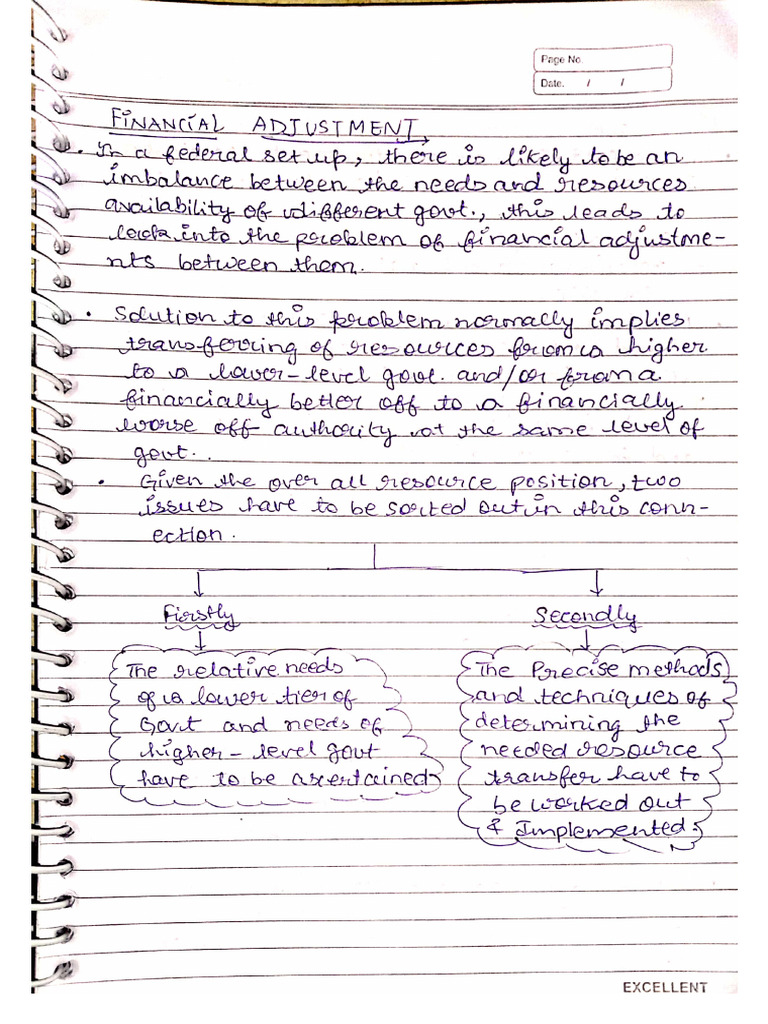 Page No.
Date. / /
FINANCIAL ADJUSTMENT
• In a federal set up, there is likely to be an
imbalance between the needs and resources
availability of different govt., this leads to
look into the problem of financial adjustme-
nts between them.
• Solution to this problem normally implies
transferring of resources from a higher
to a lower-level govt. and/or from a
financially better off to a financially
worse off authority at the same level of
govt..
• Given the over all resource position, two
issues have to be sorted out in this conn-
ection.
Firstly
Secondly
The relative needs
of a lower tier of
Govt and needs of
higher-level govt
have to be ascertained
The Precise methods
and techniques of
determining the
needed resource
transfer have to
be worked out
& Implemented.
EXCELLENT